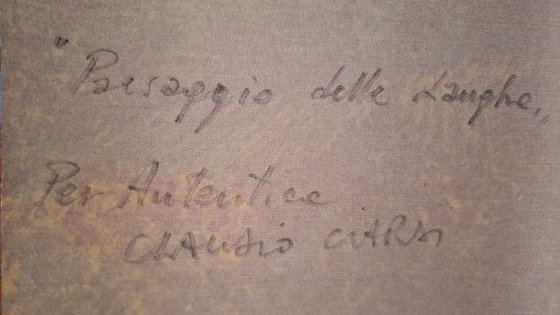 "Paesaggio delle Langhe„
Per Autentica
CLAUDIO